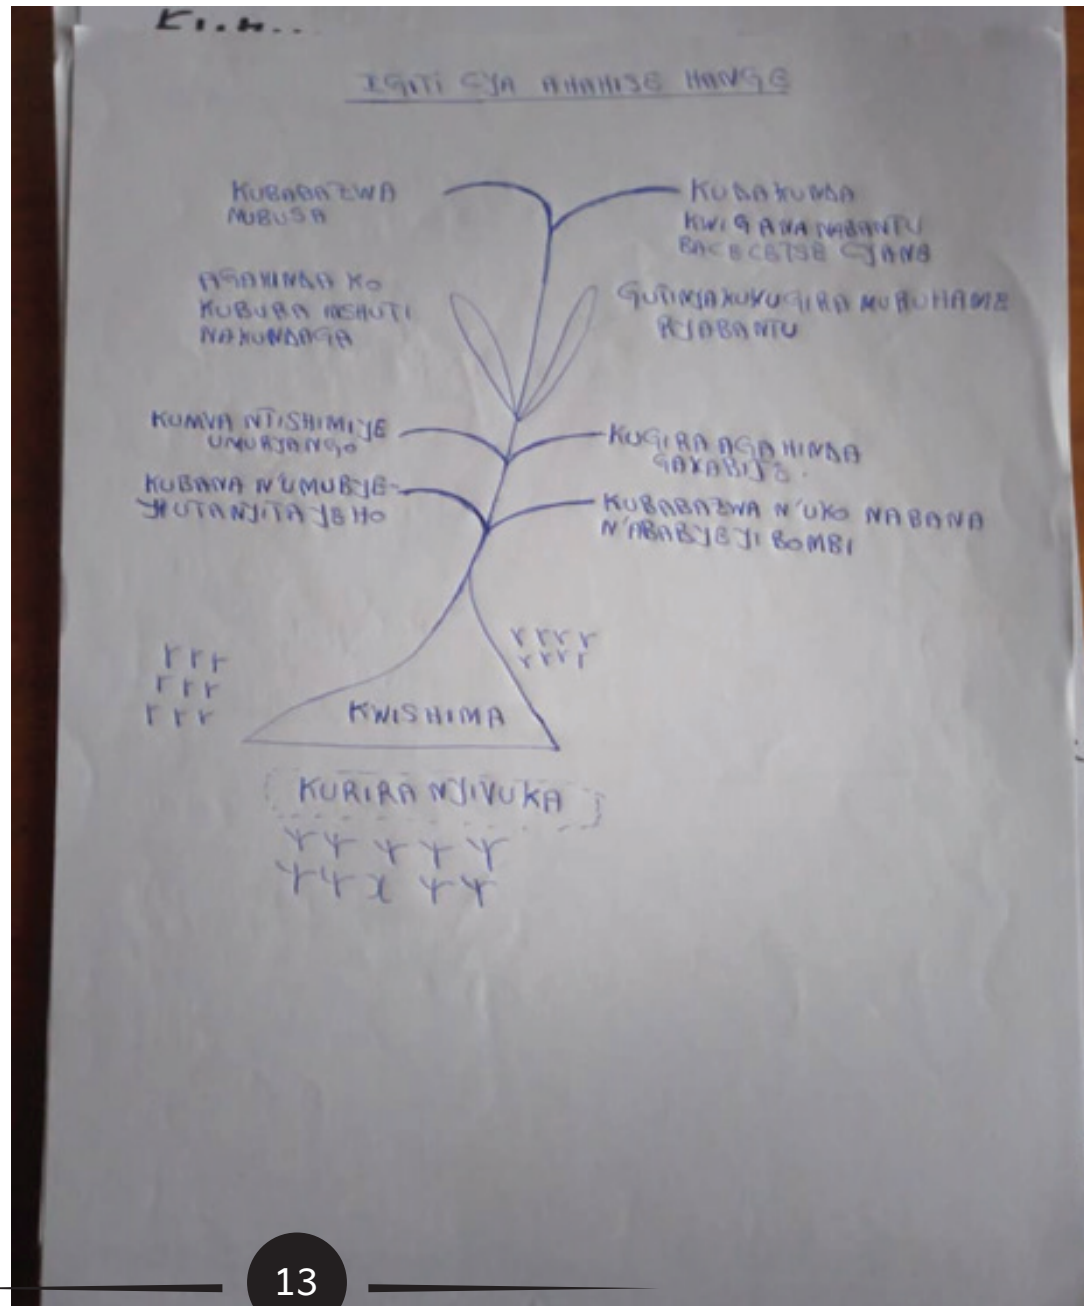 IGITI CYA AHAHISE HANGE
KUBABAZWA
NUBUSA
KUDAKUNDA
KWIGANA NABANTU
BACECETSE CYANE
AGAHINDA KO
KUBURA INSHUTI
NAKUNDAGA
GUTINYAKUKUGIRA MURUHAME
RJABANTU
KUMVA NTISHIMIJE
UMURJANGO
KUGIRA AGAHINDA
GAKABIJE.
KUBANA N'UMUBJE-
JIUTANJITAJEHO
KUBABAZWA N'UKO NABANA
N'ABABJEJI BOMBI
KWISHIMA
KURIRA NJIVUKA
13